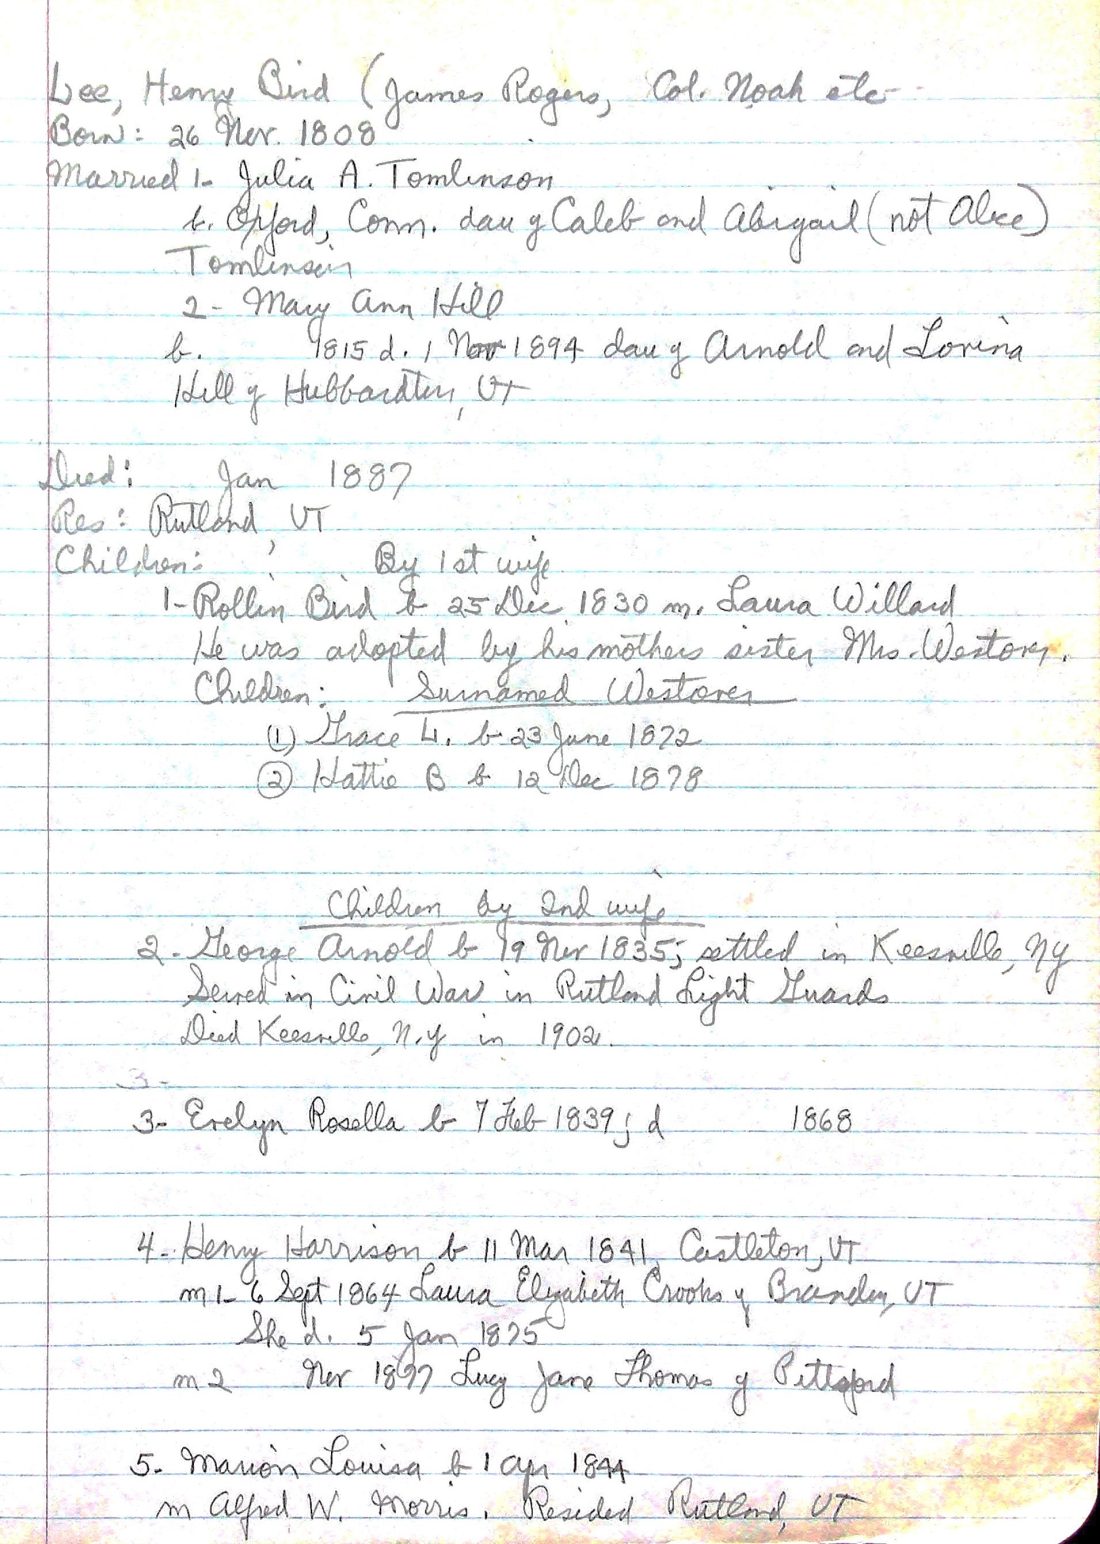 Lee, Henry Bird (James Rogers, Col. Noah etc
Born: 26 Nov. 1808
Married 1- Julia A. Tomlinson
b. Oxford, Conn. dau of Caleb and Abigail (not Alice)
Tomlinson
2- Mary Ann Hill
b. 1815 d. 1 Nov 1894 dau of Arnold and Lovina
Hill of Hubbardton, VT
Died: Jan 1887
Res: Rutland, VT
Children: By 1st wife
1- Rollin Bird b 25 Dec 1830 m. Laura Willard
He was adopted by his mothers sister Mrs. Westover.
Children: Surnamed Westover
(1) Grace L. b 23 June 1872
(2) Hattie B b 12 Dec 1878
Children by 2nd wife
2- George Arnold b 19 Nov 1835; settled in Keesville, NY
Served in Civil War in Rutland Light Guards
Died Keesville, N.Y in 1902.
3-
3- Evelyn Rosella b 7 Feb 1839; d 1868
4- Henry Harrison b 11 Mar 1841 Castleton, VT
m 1- 6 Sept 1864 Laura Elizabeth Crooks of Brandon, VT
She d. 5 Jan 1875
m 2 Nov 1877 Lucy Jane Thomas of Pittsford
5- Marion Louisa b 1 Apr 1844
m Alfred W. Morris. Resided Rutland, VT